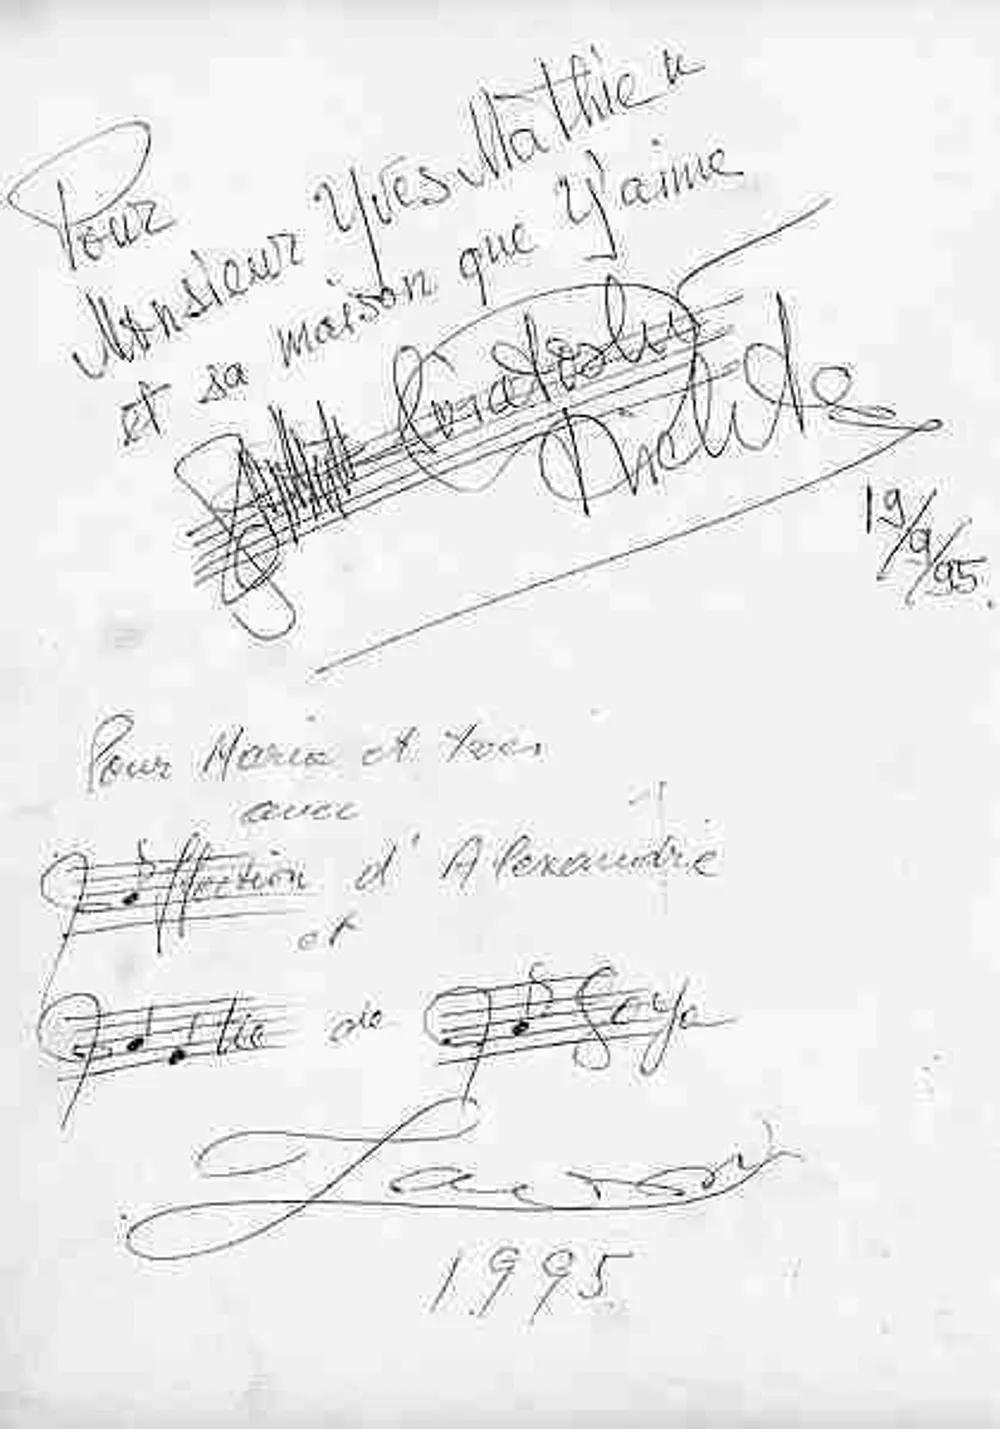 Pour
Monsieur Yves Mathieu
et sa maison que j'aime
19/9/95.
Pour Maria et Yves
avec
ffection d'Alexandre
et
lie de Goya
1995